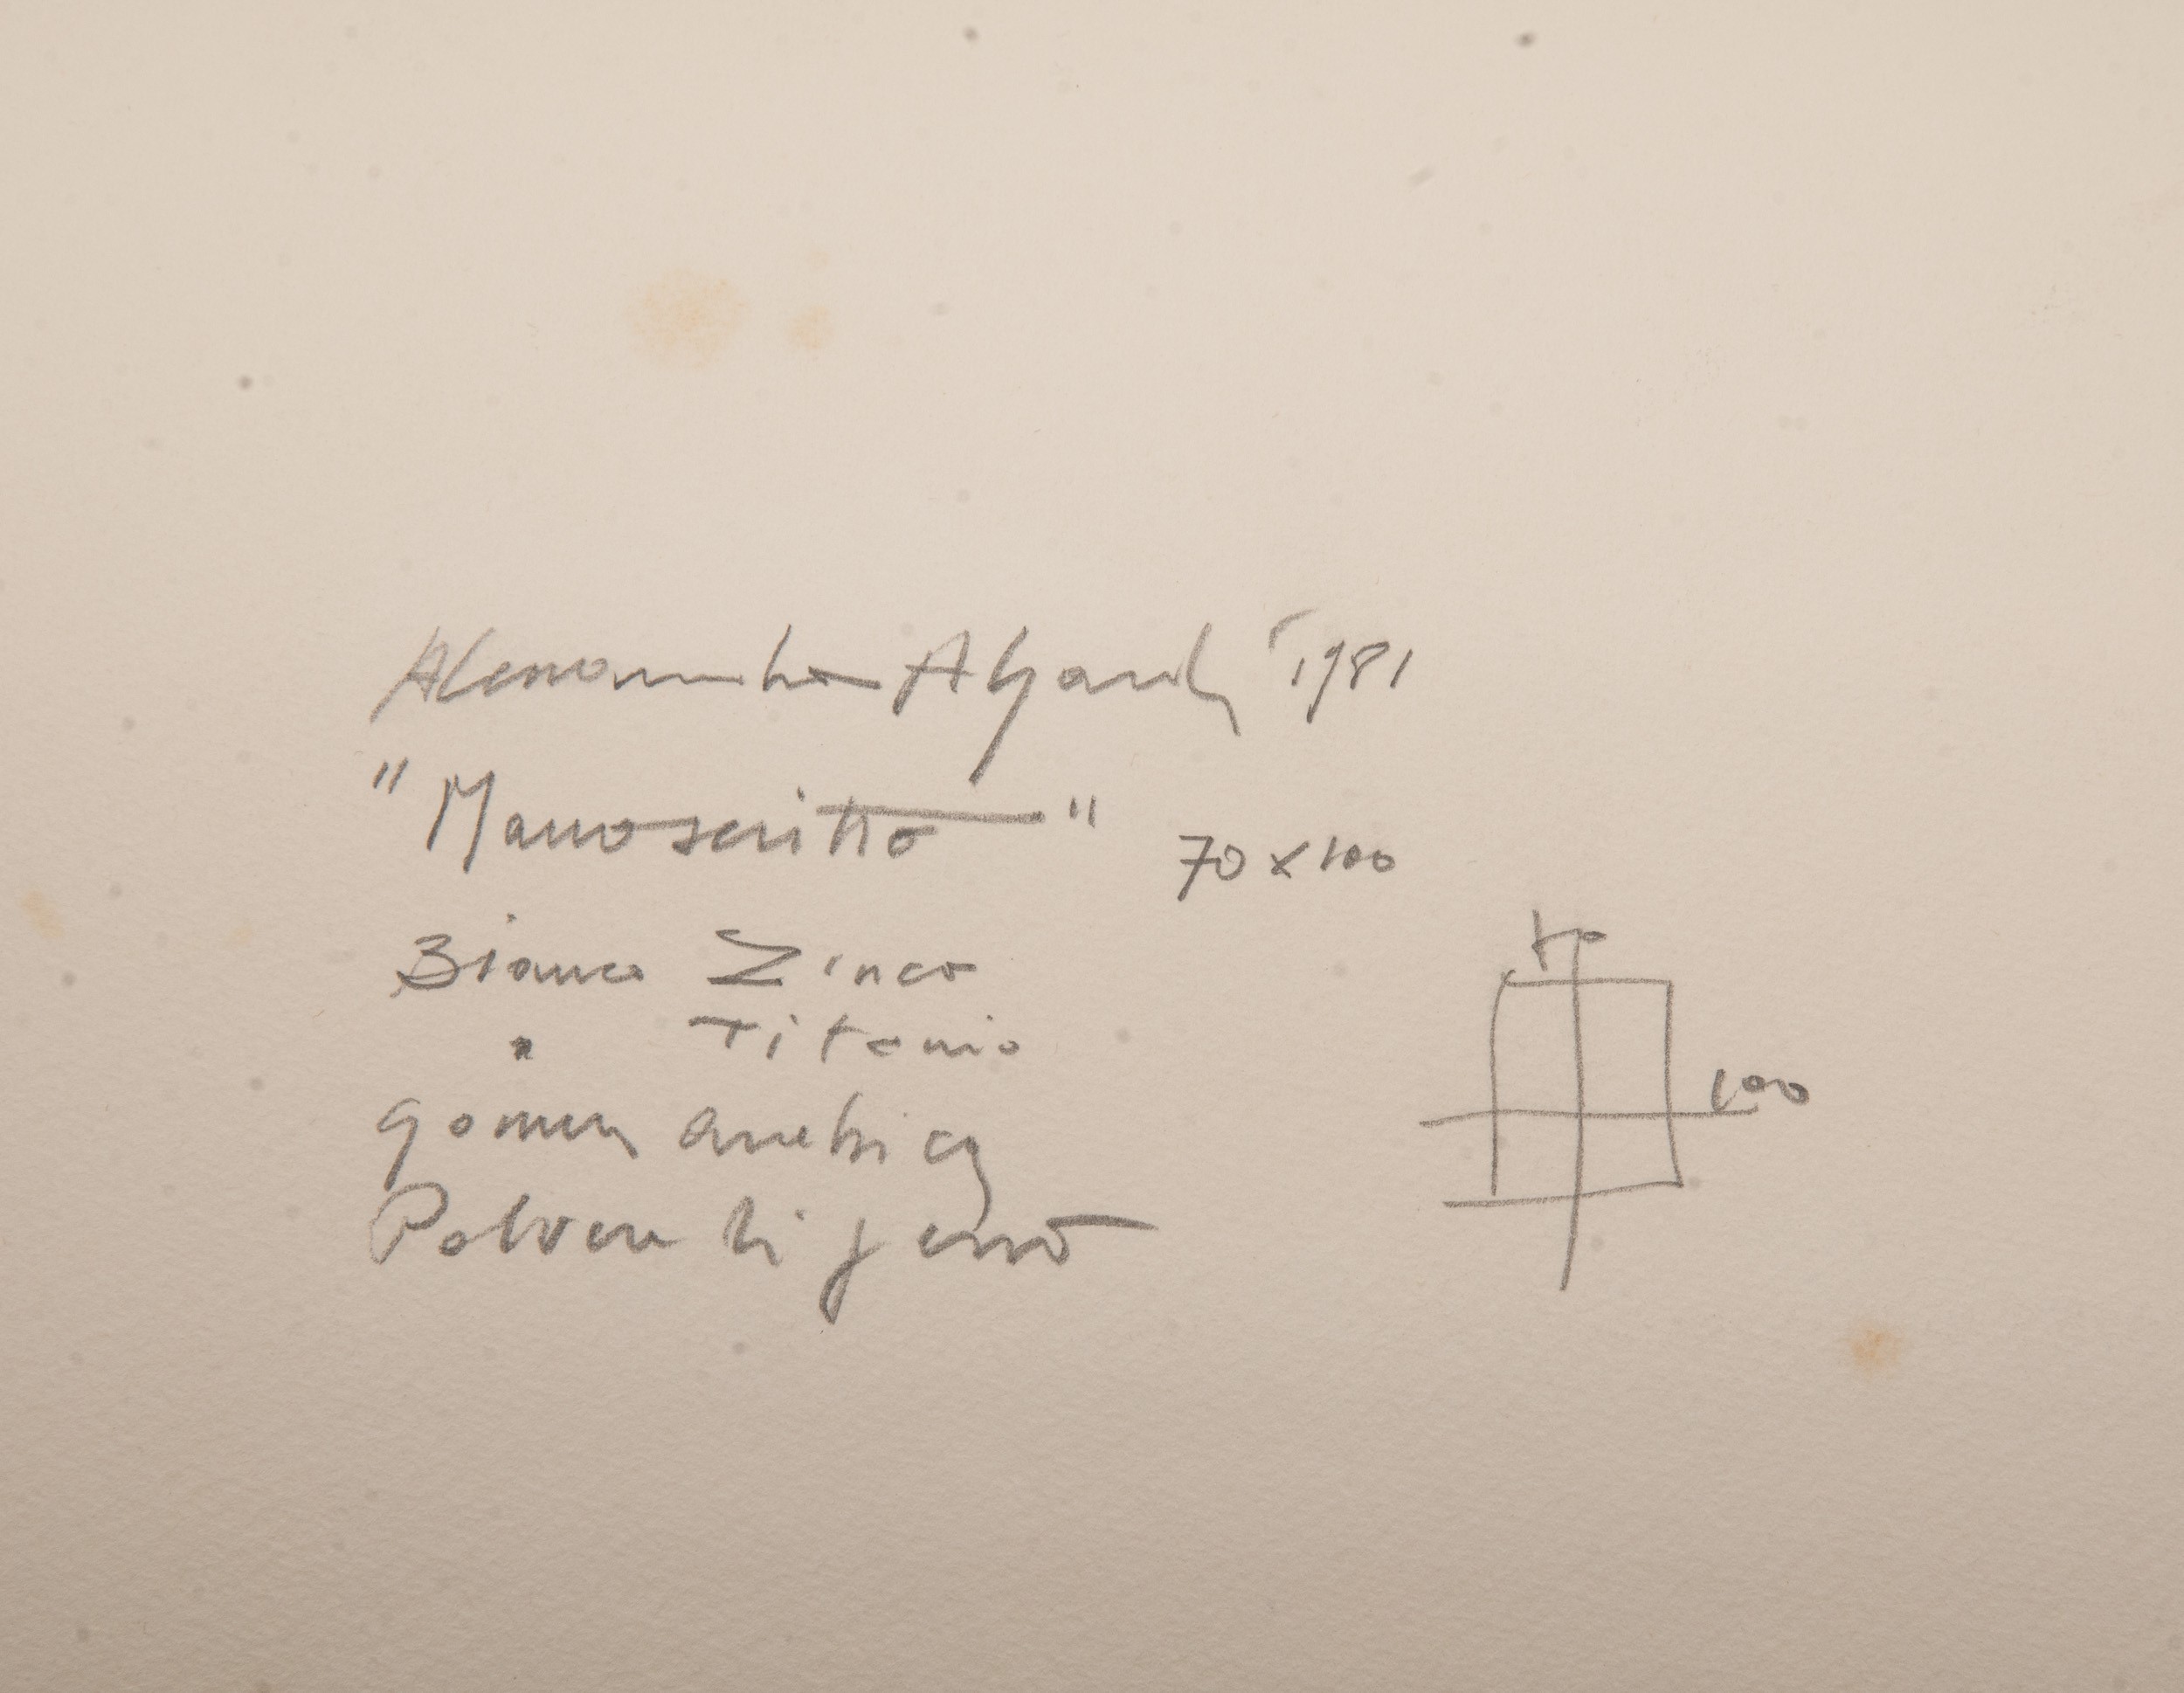 Alessandro Algardi 1981
"Manoscritto" 70 x 100
Bianco Zinco
" Titanio
70
gomma arabica
100
Polvere di gesso